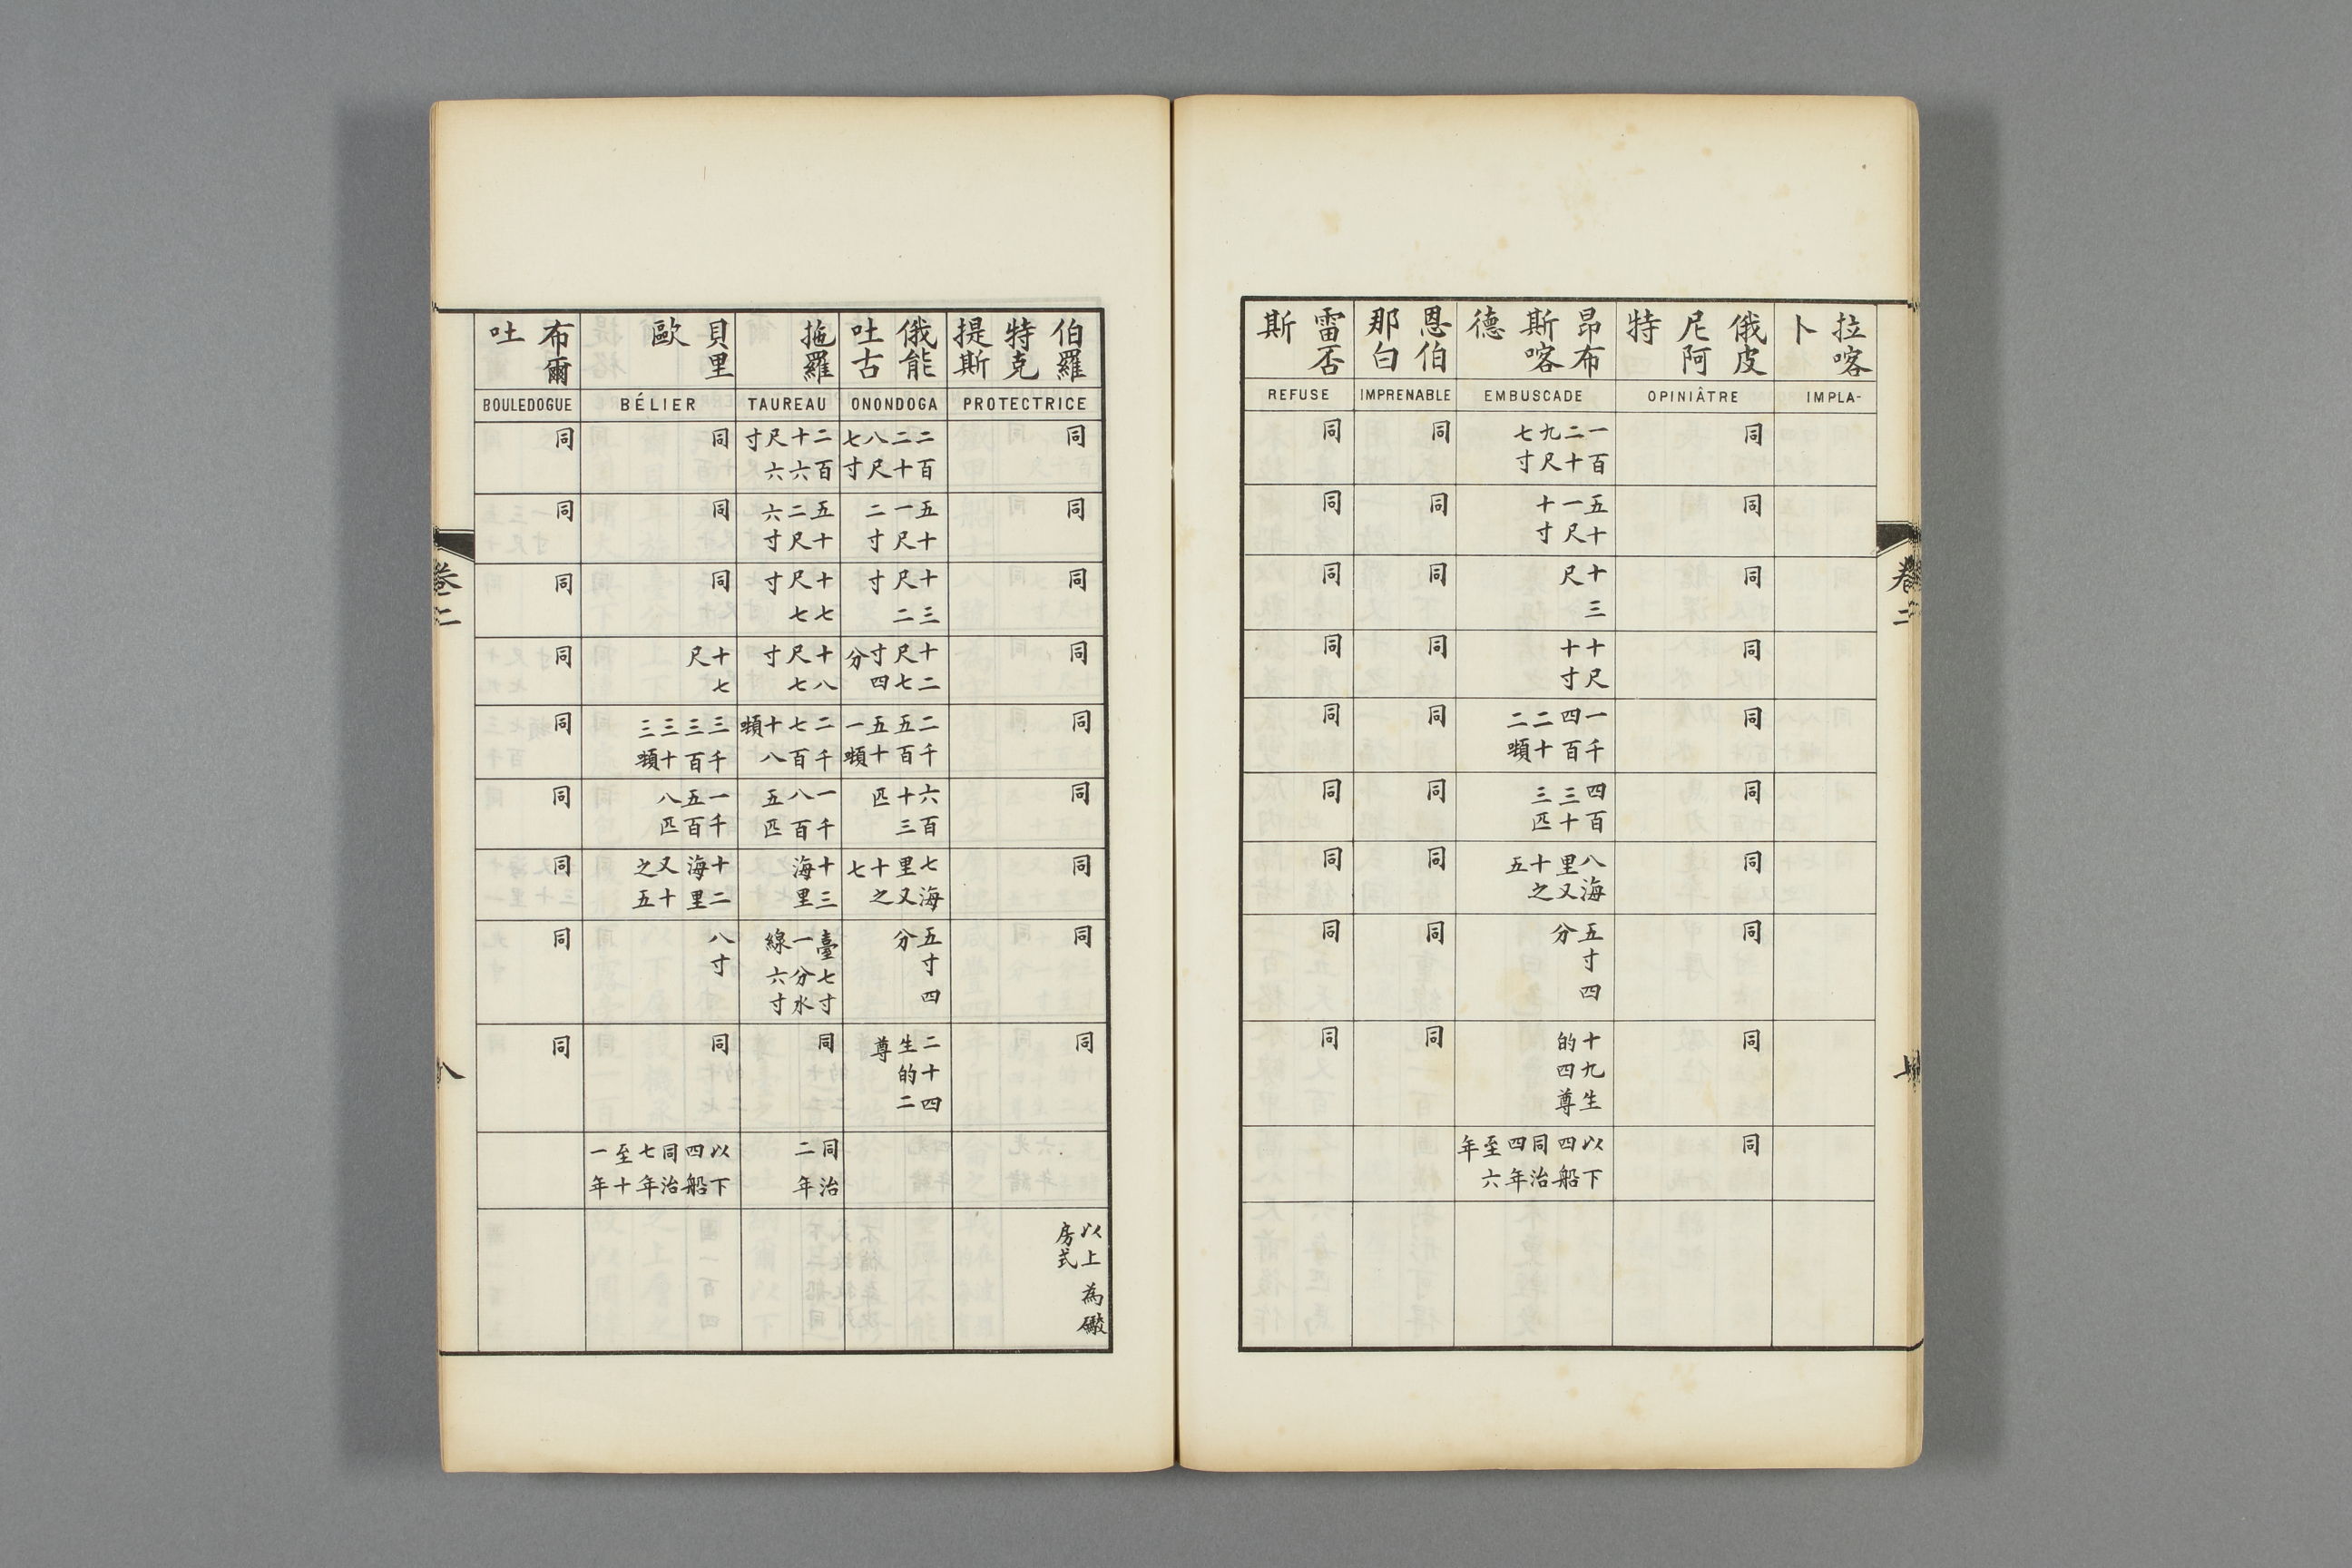 卷二
七
拉喀
卜
IMPLA-
俄皮
尼阿
特
OPINIÂTRE
同
同
同
同
同
同
同
同
同
同
昂布
斯喀
德
EMBUSCADE
一百二十九尺七寸
五十一尺十寸
十三尺
十尺十寸
一千四百二十二噸
四百三十三匹
八海里又十之五
五寸四分
十九生的四尊
以下四船同治四年至六年
恩伯
那白
IMPRENABLE
同
同
同
同
同
同
同
同
同
雷否
斯
REFUSE
同
同
同
同
同
同
同
同
同
伯羅
特克
提斯
PROTECTRICE
同
同
同
同
同
同
同
同
同
以上為礮房式
俄能
吐古
ONONDOGA
二百二十八尺七寸
五十一尺二寸
十三尺二寸
十二尺七寸四分
二千五百五十一噸
六百十三匹
七海里又十之七
五寸四分
二十四生的二尊
拖羅
TAUREAU
二百十六尺六寸
五十二尺六寸
十七尺七寸
十八尺七寸
二千七百十八噸
一千八百五匹
十三海里
臺七寸一分水線六寸
同
同治二年
貝里
歐
BÉLIER
同
同
同
十七尺
三千三百三十三噸
一千五百八匹
十二海里又十之五
八寸
同
以下四船同治七年至十一年
布爾
吐
BOULEDOGUE
同
同
同
同
同
同
同
同
同
卷二
八